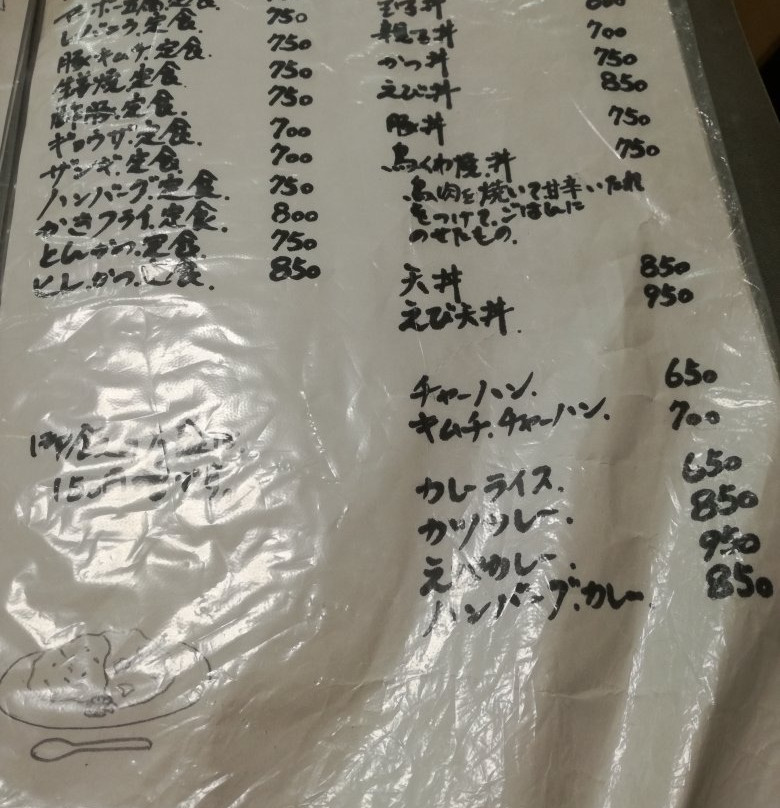 定食. 750
豚キムチ.定食. 750
生姜焼.定食 750
定食. 750
ギョウザ.定食. 700
ザンギ.定食 700
ハンバーグ.定食. 750
かきフライ.定食. 800
とんかつ.定食. 750
かつ.定食. 850
玉子丼
親子丼 700
かつ丼 750
えび丼 850
豚丼 750
鳥くわ焼.丼 750
鳥肉を焼いて甘辛いたれ
をつけて、ごはんに
のせたもの.
天丼 850
えび天丼. 950
チャーハン. 650
キムチ.チャーハン. 700
カレーライス. 650
カツカレー. 850
えびカレー. 950
ハンバーグ.カレー. 850